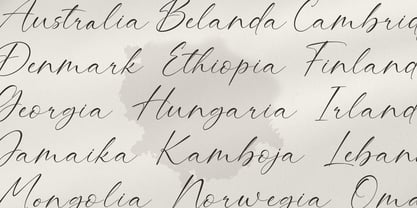 Australia Belanda Cambrid
Denmark Ethiopia Finland
Georgia Hungaria Irland
Jamaika Kamboja Leban
Mongolia Norwegia Oma